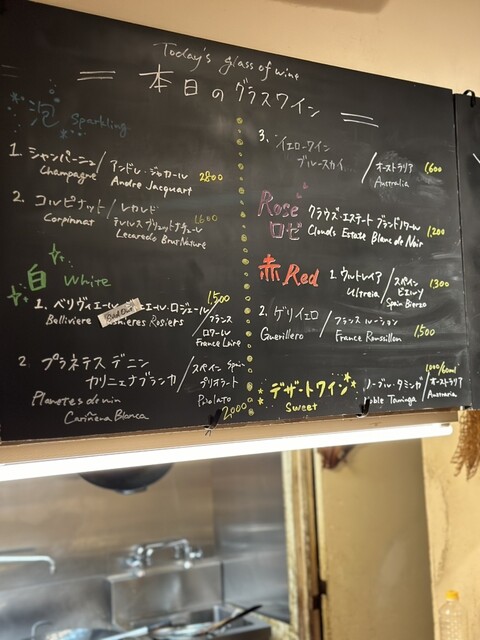 Today's glass of wine
本日のグラスワイン
泡 Sparkling
1. シャンパーニュ / アンドレ・ジャカール 2800
Champagne Andre Jacquart
2. コルピナット / レカレド 1600
Corpinnat
Lecaredo Brut Nature
白 White
1. ベリヴィエール エール・ロジェール / フランス 1,500
ロワール
Belliviere Rosiers France Loire
Sold Out
2. プラネテス デニン / スペイン Spain
カリニェナブランカ プリオラート
Planetes de nin
Cariñena Blanca 2,000
3. イエローワイン / オーストラリア 1600
ブルースカイ Australia
Rose クラウズ・エステート ブランドノワール 1,200
ロゼ Clouds Estate Blanc de Noir
赤 Red 1. ウルトレイア / スペイン 1300
ビエルソ
Ultreia Spain Bierzo
2. ゲリイェロ / フランス ルーション
Guerillero France Roussillon 1,500
デザートワイン ノーブル・タミンガ / オーストラリア
Sweet Noble Taminga